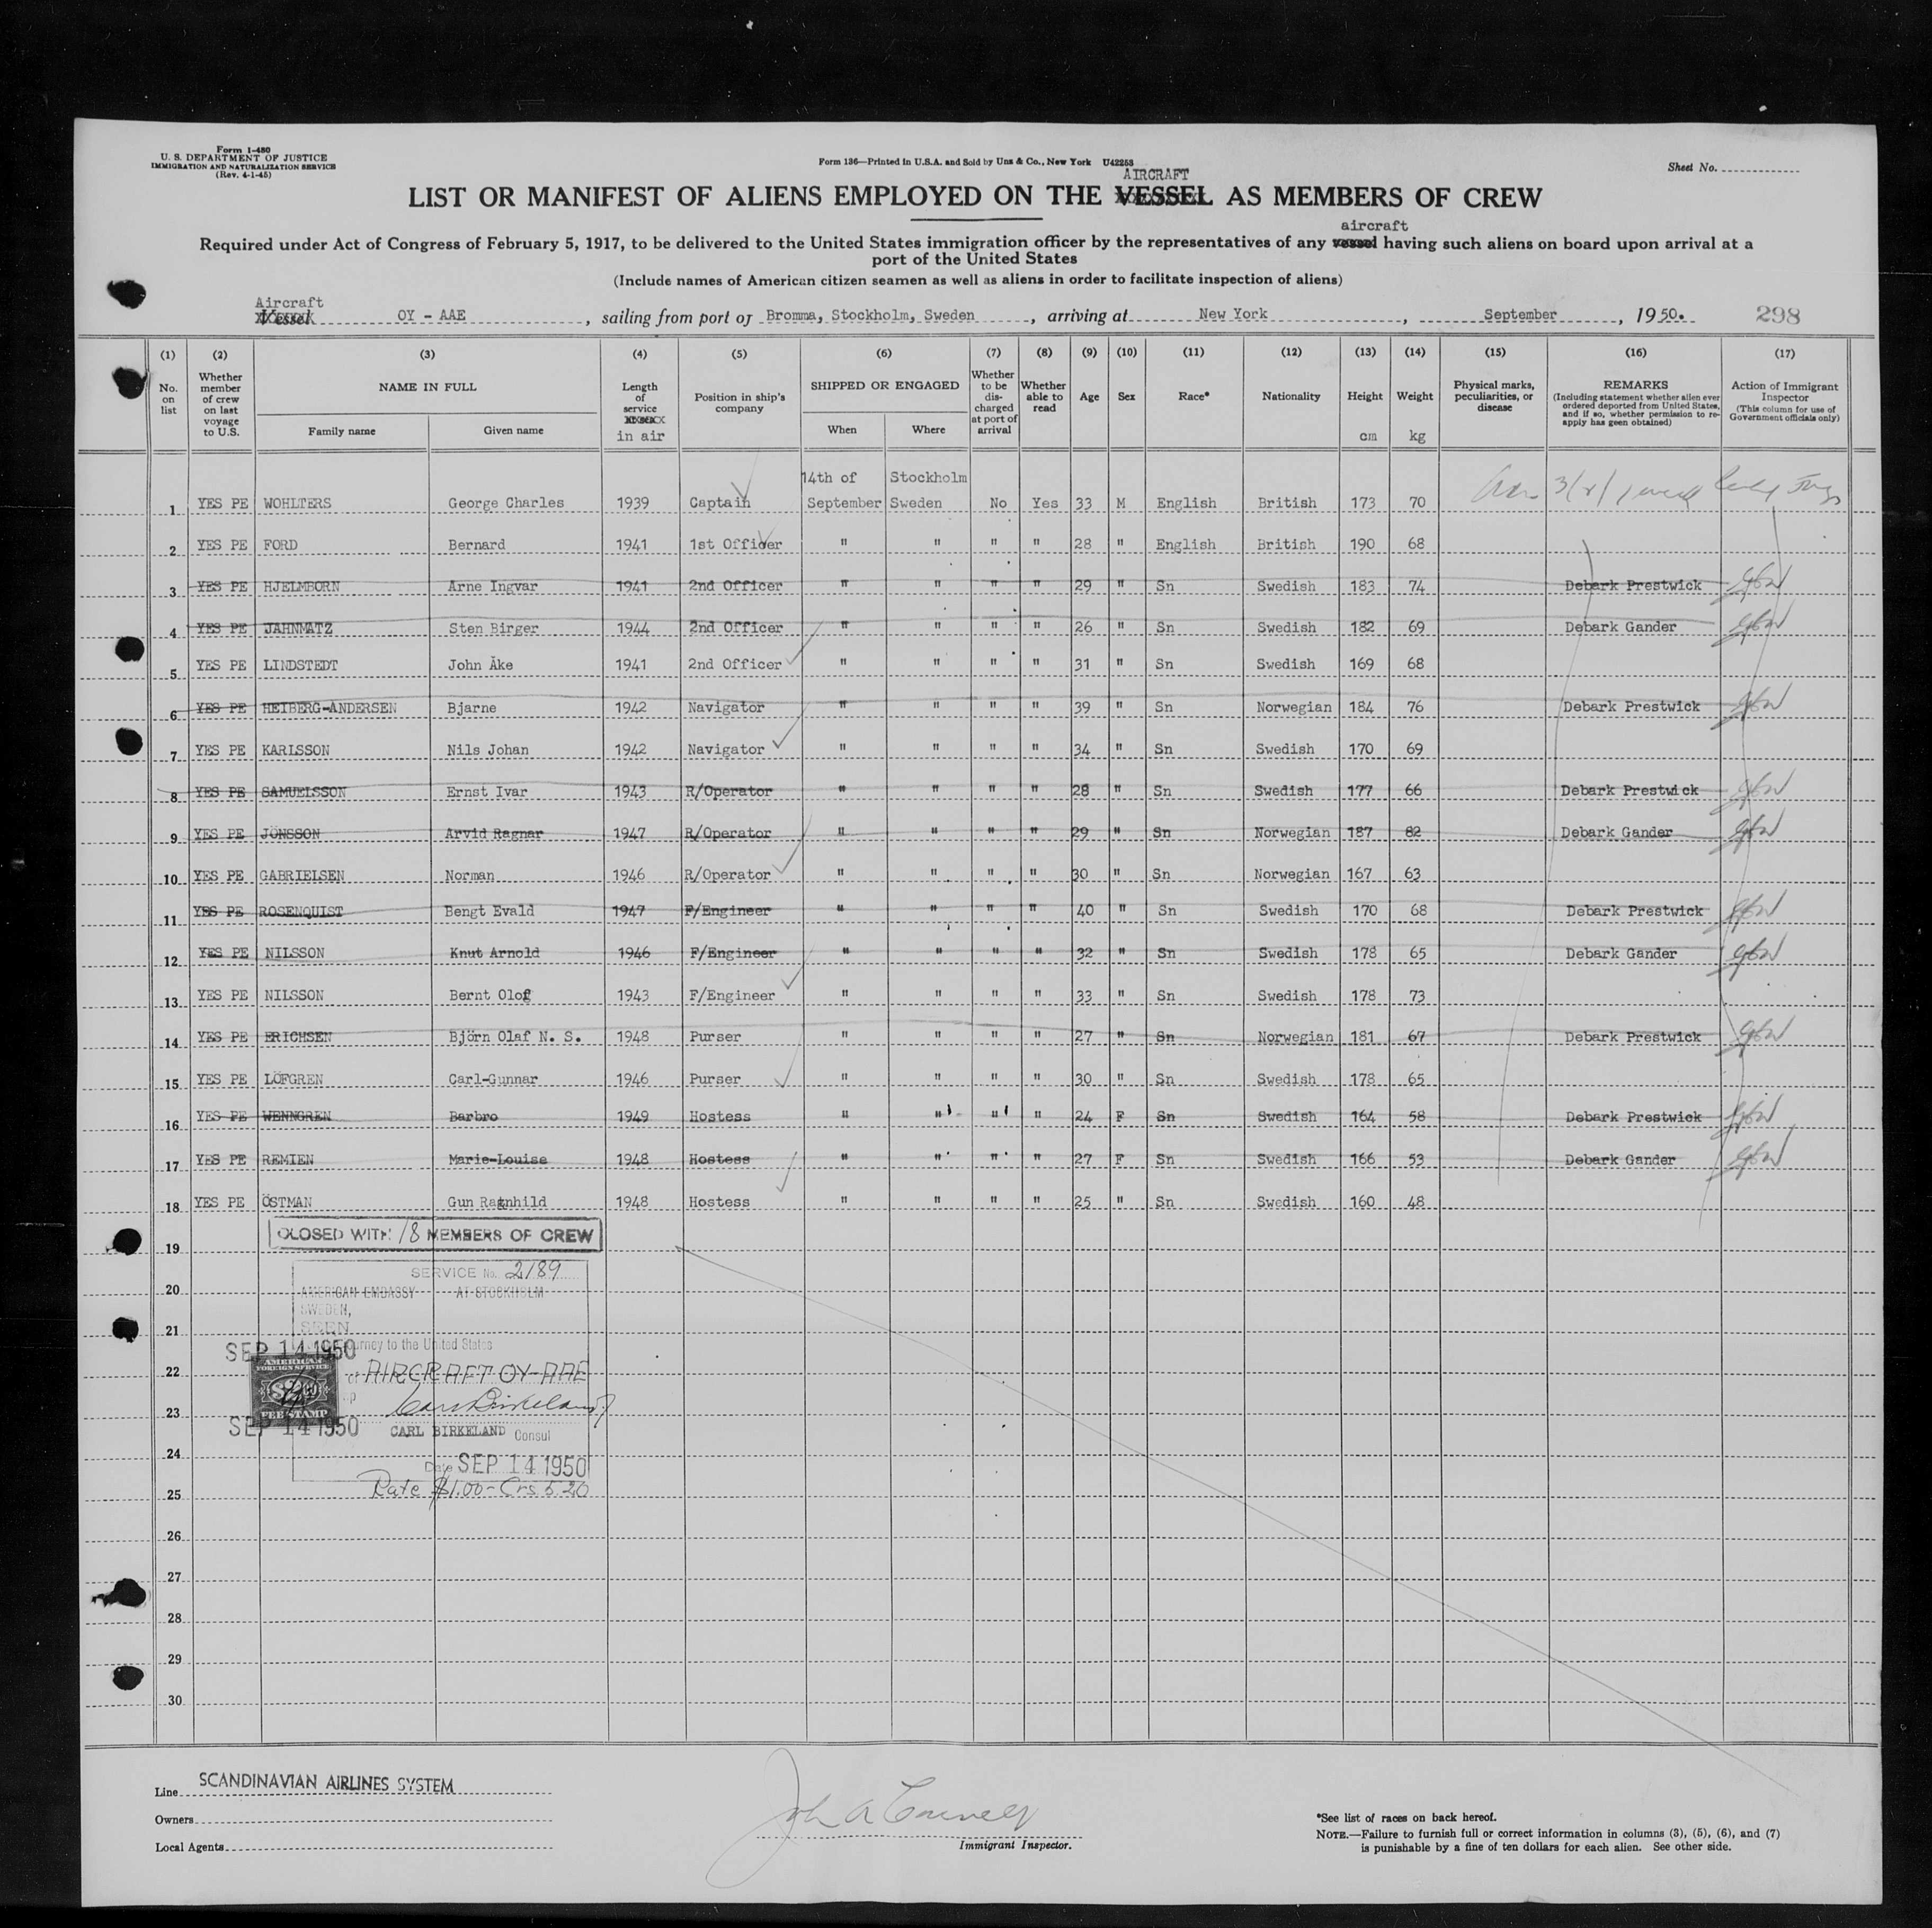 Form I-480
U. S. DEPARTMENT OF JUSTICE
IMMIGRATION AND NATURALIZATION SERVICE
(Rev. 4-1-45)
Form 136—Printed in U.S.A. and Sold by Unz & Co., New York U42253
Sheet No.
AIRCRAFT
LIST OR MANIFEST OF ALIENS EMPLOYED ON THE VESSEL AS MEMBERS OF CREW
aircraft
Required under Act of Congress of February 5, 1917, to be delivered to the United States immigration officer by the representatives of any vessel having such aliens on board upon arrival at a
port of the United States
(Include names of American citizen seamen as well as aliens in order to facilitate inspection of aliens)
Aircraft
Vessel OY - AAE, sailing from port of Bromma, Stockholm, Sweden, arriving at New York, September, 1950. 298
(1) (2) (3) (4) (5) (6) (7) (8) (9) (10) (11) (12) (13) (14) (15) (16) (17)
No. on list
Whether member of crew on last voyage to U.S.
NAME IN FULL
Family name
Given name
Length of service in air
Position in ship's company
SHIPPED OR ENGAGED
When
Where
Whether to be discharged at port of arrival
Whether able to read
Age
Sex
Race*
Nationality
Height
cm
Weight
kg
Physical marks, peculiarities, or disease
REMARKS
(Including statement whether alien ever ordered deported from United States, and if so, whether permission to re-apply has geen obtained)
Action of Immigrant Inspector
(This column for use of Government officials only)
14th of Stockholm
1 YES PE WOHLTERS George Charles 1939 Captain September Sweden No Yes 33 M English British 173 70
2 YES PE FORD Bernard 1941 1st Officer " " " " 28 " English British 190 68
3 YES PE HJELMBORN Arne Ingvar 1941 2nd Officer " " " " 29 " Sn Swedish 183 74 Debark Prestwick
4 YES PE JAHNMATZ Sten Birger 1944 2nd Officer " " " " 26 " Sn Swedish 182 69 Debark Gander
5 YES PE LINDSTEDT John Åke 1941 2nd Officer " " " " 31 " Sn Swedish 169 68
6 YES PE HEIBERG-ANDERSEN Bjarne 1942 Navigator " " " " 39 " Sn Norwegian 184 76 Debark Prestwick
7 YES PE KARLSSON Nils Johan 1942 Navigator " " " " 34 " Sn Swedish 170 69
8 YES PE SAMUELSSON Ernst Ivar 1943 R/Operator " " " " 28 " Sn Swedish 177 66 Debark Prestwick
9 YES PE JÖNSSON Arvid Ragnar 1947 R/Operator " " " " 29 " Sn Norwegian 187 82 Debark Gander
10 YES PE GABRIELSEN Norman 1946 R/Operator " " " " 30 " Sn Norwegian 167 63
11 YES PE ROSENQUIST Bengt Evald 1947 F/Engineer " " " " 40 " Sn Swedish 170 68 Debark Prestwick
12 YES PE NILSSON Knut Arnold 1946 F/Engineer " " " " 32 " Sn Swedish 178 65 Debark Gander
13 YES PE NILSSON Bernt Olof 1943 F/Engineer " " " " 33 " Sn Swedish 178 73
14 YES PE ERICHSEN Björn Olaf N. S. 1948 Purser " " " " 27 " Sn Norwegian 181 67 Debark Prestwick
15 YES PE LÖFGREN Carl-Gunnar 1946 Purser " " " " 30 " Sn Swedish 178 65
16 YES PE WENNGREN Barbro 1949 Hostess " " " " 24 F Sn Swedish 164 58 Debark Prestwick
17 YES PE REMIEN Marie-Louise 1948 Hostess " " " " 27 F Sn Swedish 166 53 Debark Gander
18 YES PE ÖSTMAN Gun Ragnhild 1948 Hostess " " " " 25 " Sn Swedish 160 48
CLOSED WITH 18 MEMBERS OF CREW
19
SERVICE No. 2189
20
AMERICAN EMBASSY AT STOCKHOLM
SWEDEN,
SEEN
21
SEP 14 1950 journey to the United States
22
of AIRCRAFT OY-AAE
AMERICAN
FOREIGN SERVICE
FEE STAMP
23
Carl Birkeland
SEP 14 1950 CARL BIRKELAND Consul
24
Date SEP 14 1950
Rate $1.00 - Crs 5.20
25
26
27
28
29
30
Line SCANDINAVIAN AIRLINES SYSTEM
Owners
Local Agents
Immigrant Inspector.
*See list of races on back hereof.
NOTE.—Failure to furnish full or correct information in columns (3), (5), (6), and (7)
is punishable by a fine of ten dollars for each alien. See other side.